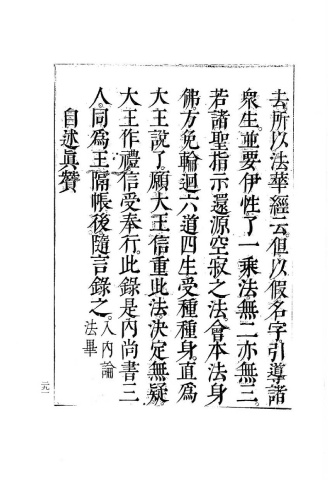 去。所以法華經云。但以假名字。引導諸
衆生。並要伊性了一乘法。無二亦無三。
若諸聖指示還源空寂之法。會本法身
佛。方免輪迴六道四生。受種種身。直爲
大王說了。願大王信重此法。決定無疑。
大王作禮。信受奉行。此錄是內尚書三
人。同爲王隔帳後。隨言錄之。入內論
法畢
自述眞贊
二九一